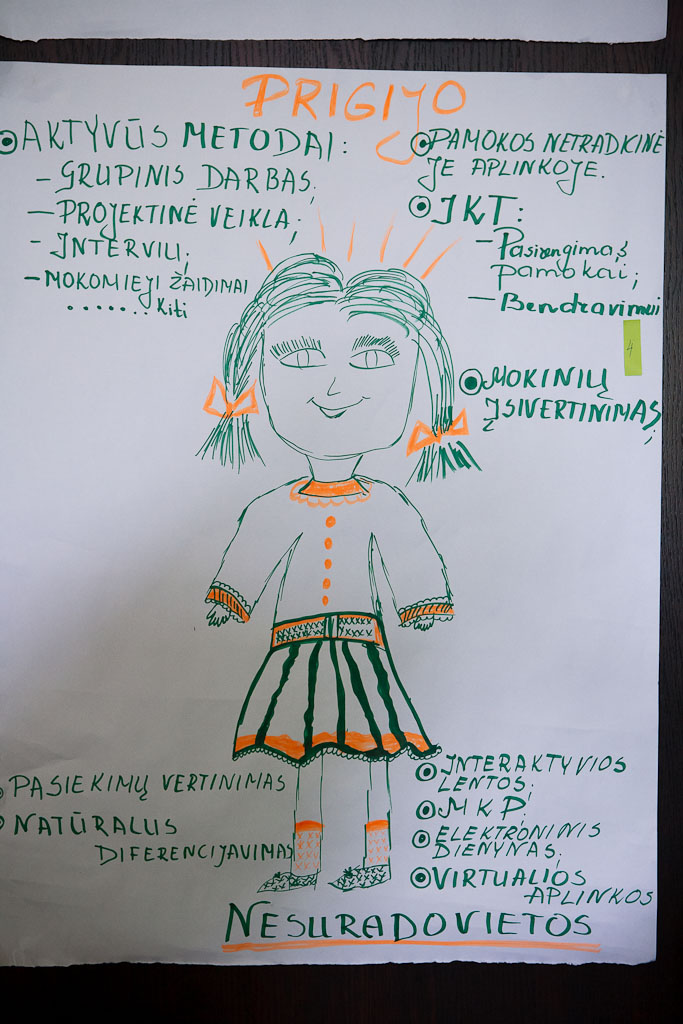 PRIGIJO
AKTYVŪS METODAI:
- GRUPINIS DARBAS;
- PROJEKTINĖ VEIKLA;
- INTERVIU;
- MOKOMIEJI ŽAIDIMAI
....... Kiti
PAMOKOS NETRADICINĖ
JE APLINKOJE.
IKT:
- Pasirengimas
pamokai;
- Bendravimui
4
MOKINIŲ
ĮSIVERTINIMAS;
PASIEKIMŲ VERTINIMAS
NATŪRALUS
DIFERENCIJAVIMAS
INTERAKTYVIOS
LENTOS;
MKP;
ELEKTRONINIS
DIENYNAS;
VIRTUALIOS
APLINKOS
NESURADO VIETOS